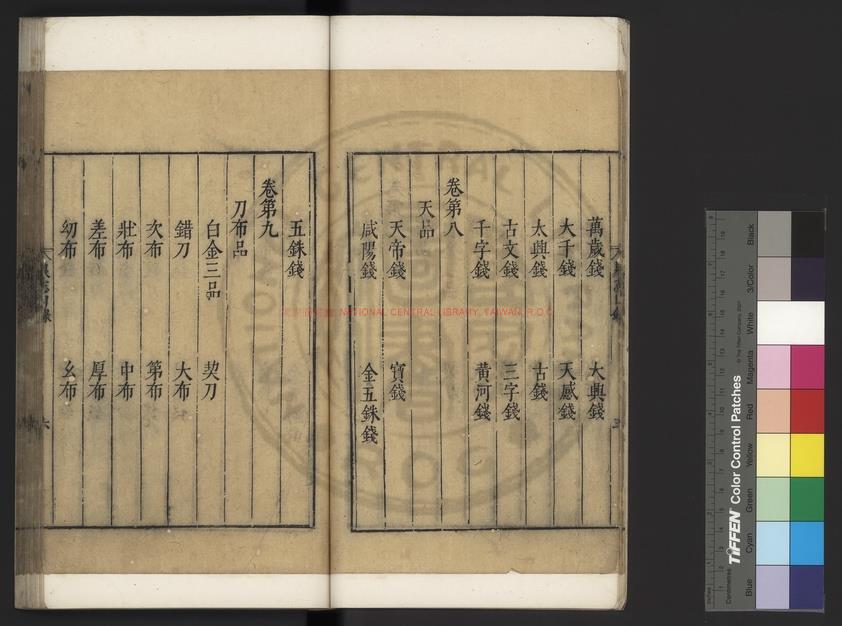 萬歲錢 大興錢
大千錢 天感錢
太興錢 古錢
古文錢 三字錢
千字錢 黃河錢
卷第八
天品
天帝錢 寶錢
咸陽錢 金五銖錢
五銖錢
卷第九
刀布品
白金三品 契刀
錯刀 大布
次布 第布
壯布 中布
差布 厚布
幼布 幺布
六
NATIONAL CENTRAL LIBRARY, TAIWAN, R.O.C
TIFFEN Color Control Patches
© The Tiffen Company, 2007
Centimetres
Blue
Cyan
Green
Yellow
Red
Magenta
White
3/Color
Black